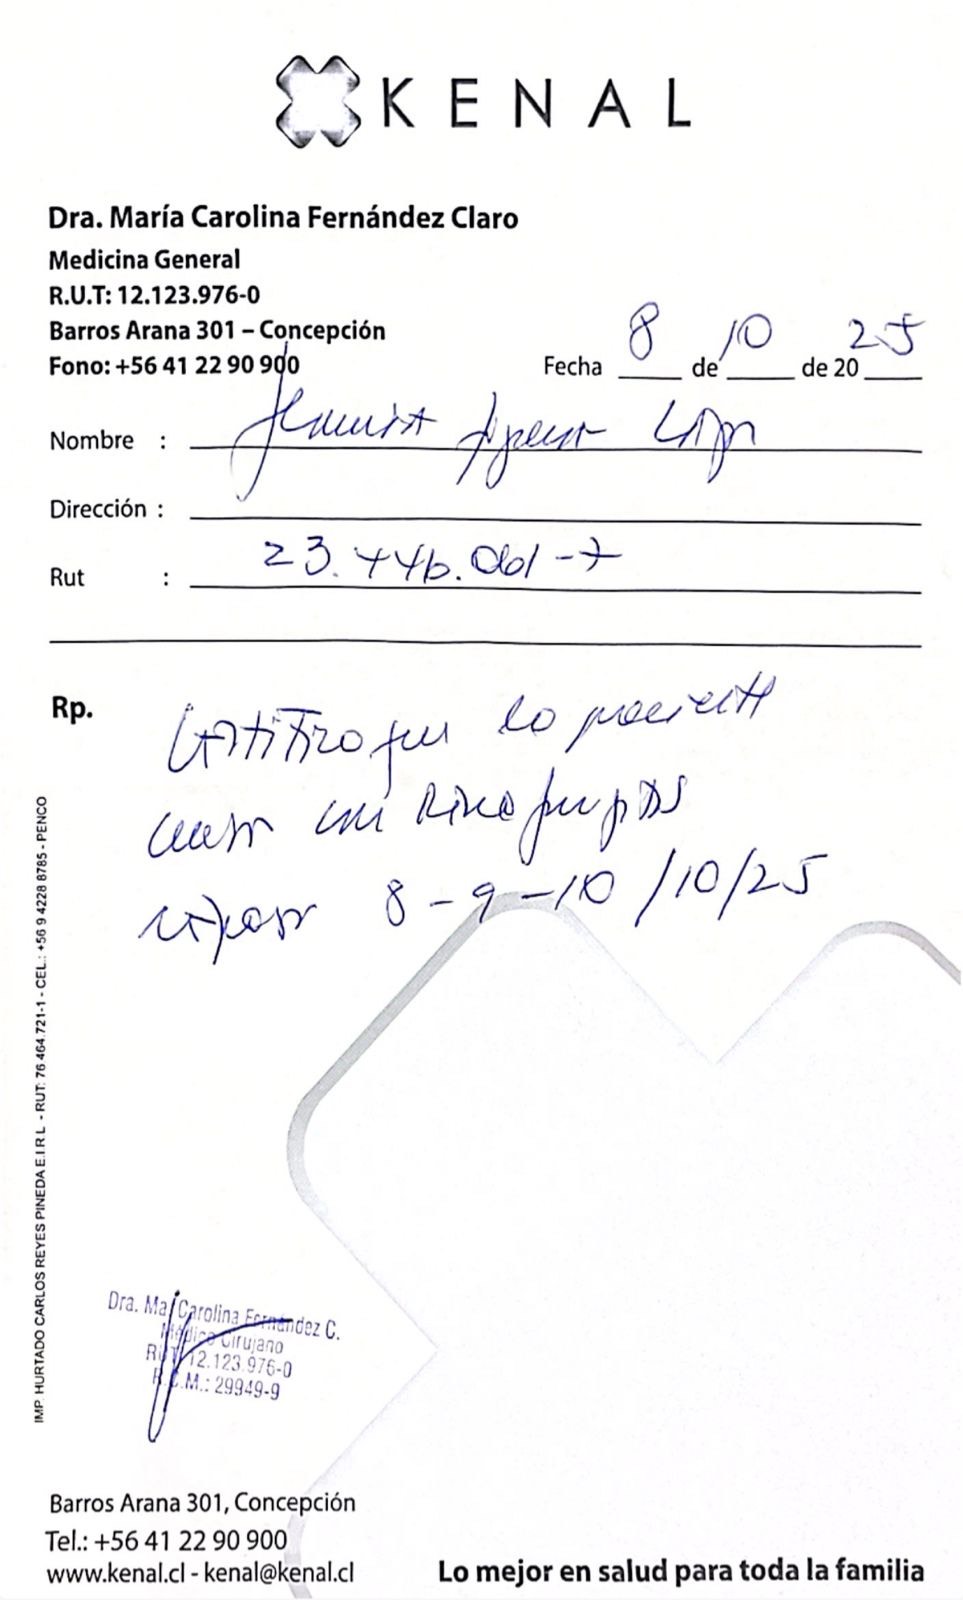 KENAL
Dra. María Carolina Fernández Claro
Medicina General
R.U.T: 12.123.976-0
Barros Arana 301 – Concepción
Fono: +56 41 22 90 900
Fecha 8 de 10 de 2025
Nombre :
Dirección :
Rut : 23.446.001-7
Rp. Certifico que la paciente
cursa con Rinofaringitis
reposo 8 - 9 - 10 /10/25
IMP HURTADO CARLOS REYES PINEDA E.I.R.L - RUT: 76 464.721-1 - CEL.: +56 9 4228 8785 - PENCO
Dra. Ma Carolina Fernández C.
Médico Cirujano
Rut 12.123.976-0
R.C.M.: 29949-9
Barros Arana 301, Concepción
Tel.: +56 41 22 90 900
www.kenal.cl - kenal@kenal.cl
Lo mejor en salud para toda la familia